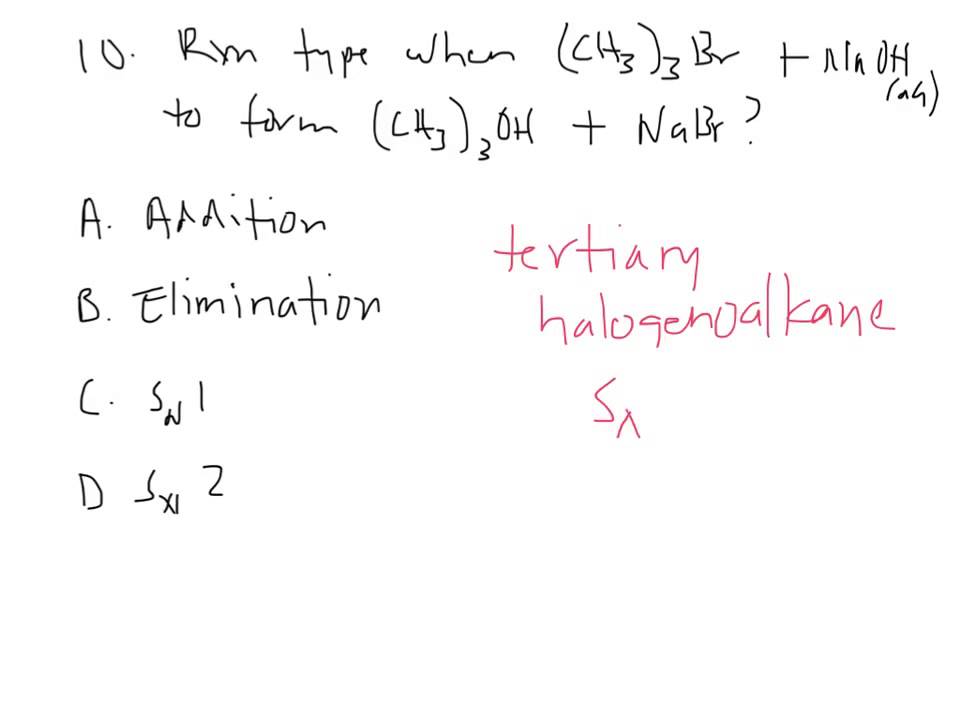 10. Rxn type when (CH3)3Br + NaOH(aq)
to form (CH3)3OH + NaBr?
A. Addition
B. Elimination
C. SN1
D SN2
tertiary
halogenoalkane
S